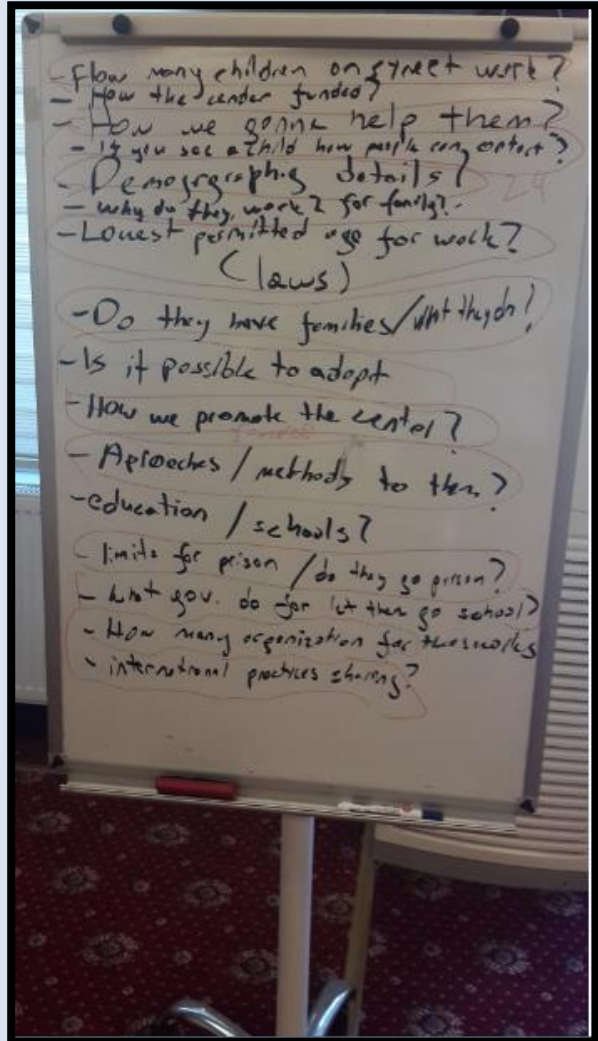 - How many children on street work?
- How the center funded?
- How we gonna help them?
- If you see a child how people can contact?
- Demographig details? 24
- Why do they work? for family?
- Lowest permitted age for work?
(laws)
- Do they have families/what they do?
- Is it possible to adopt
- How we promote the center?
- Aprooches / methods to them?
- education / schools?
- limits for prison / do they go prison?
- what gov. do for let them go school?
- How many organization for
- international practices sharing?